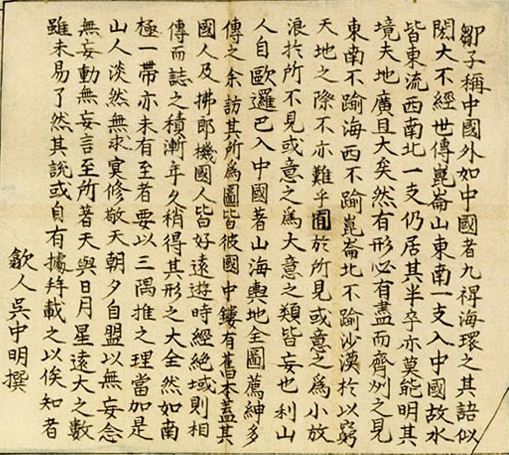 鄒子稱中國外如中國者九裨海環之其語似
閎大不經世傳崑崙山東南一支入中國故水
皆東流西南北一支仍居其半卒亦莫能明其
境夫地廣且大矣然有形必有盡而齊州之見
東南不踰海西不踰崑崙北不踰沙漠於以窮
天地之際不亦難乎囿於所見或意之爲小放
浪於所不見或意之爲大意之類皆妄也利山
人自歐邏巴入中國著山海輿地全圖薦紳多
傳之余訪其所爲圖皆彼國中鏤有舊本蓋其
國人及拂郎機國人皆好遠遊時經絕域則相
傳而誌之積漸年久稍得其形之大全然如南
極一帶亦未有至者要以三隅推之理當如是
山人淡然無求冥修敬天朝夕自盟以無妄念
無妄動無妄言至所著天與日月星遠大之數
雖未易了然其說或自有據并載之以俟知者
歙人吳中明撰